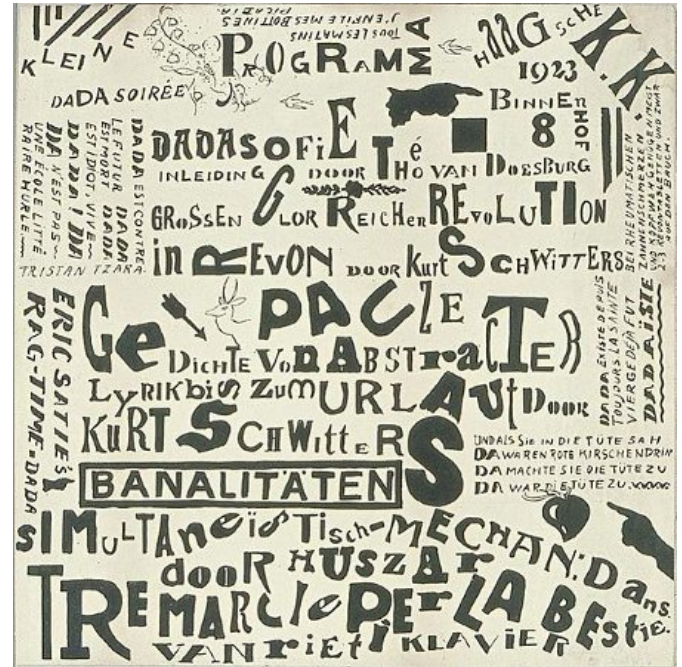 KLEINE
DADA SOIRÉE
J'ENFILE MES BOTTINES
TOUS LES MATINS
PROGRAMMA
HAAGSCHE
K.K.
1923
BINNENHOF 8
DADASOFIE
INLEIDING DOOR Théo VAN DOESBURG
GROSSEN GLORREICHEN REVOLUTION
in REVON DOOR Kurt SCHWITTERS
DADA EST CONTRE
LE FUTUR. DADA
EST MORT. DADA
EST IDIOT. VIVE
DADA! DADA
DA N'EST PAS
UNE ÉCOLE LITTÉ
RAIRE HURLE
TRISTAN TZARA
BEI RHEUMATISCHEN
ZAHNENSCHMERZEN
AUF DEN BAUCH
PAUZE
GeDICHTE Von ABSTraCTER
LyRIK biS ZuM URLAUt DOOR
KuRT SCHWittERS
DADA EXISTE DEPUIS
TOUJOURS LA SAINTE
VIERGE DÉJÀ FUT
DADAÏSTE
ERIC SATIE'S
RAG-TIME=DADA
UND ALS SIE IN DIE TÜTE SAH
DA WAREN ROTE KIRSCHEN DRIN
DA MACHTE SIE DIE TÜTE ZU
DA WAR DIE TÜTE ZU.
BANALITÄTEN
SIMuLTAneïsTisch-MECHAN: Dans.
dooR HUSZAr
TRE MARCIe PEr LA BEStie.
VAN rieti KLAVIER